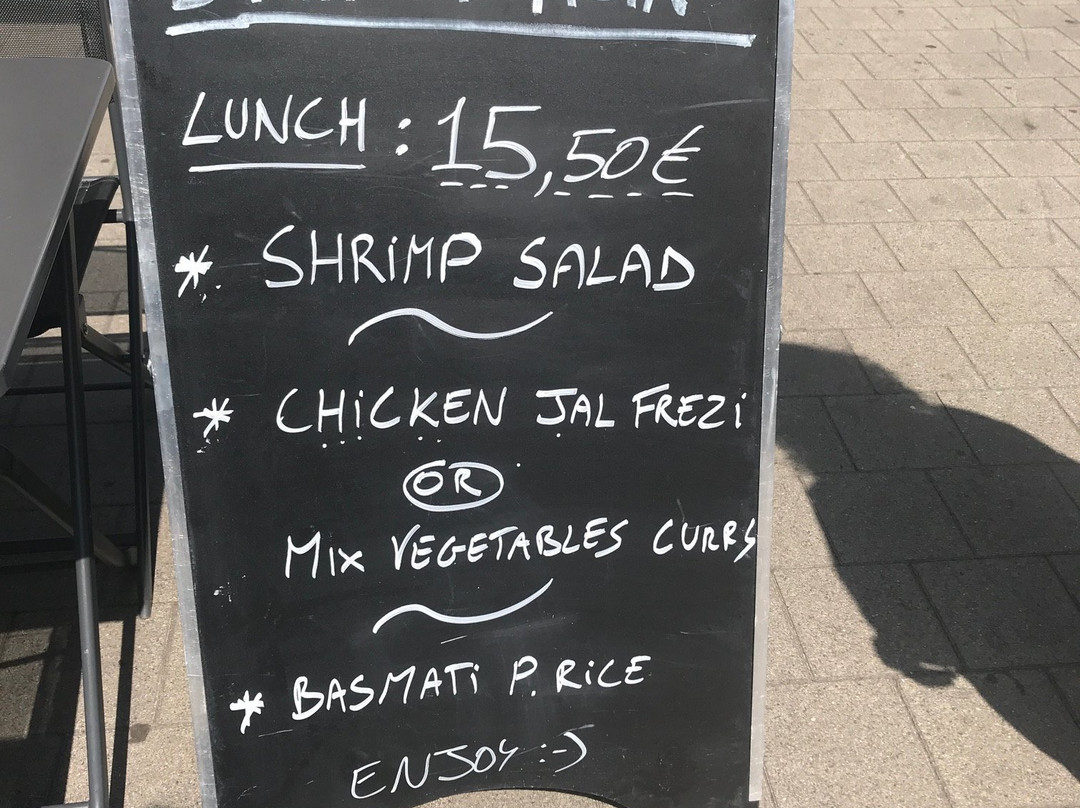 LUNCH : 15,50€
* SHRIMP SALAD
* CHICKEN JAL FREZI
OR
MIX VEGETABLES CURRY
* BASMATI P. RICE
ENJOY :-)